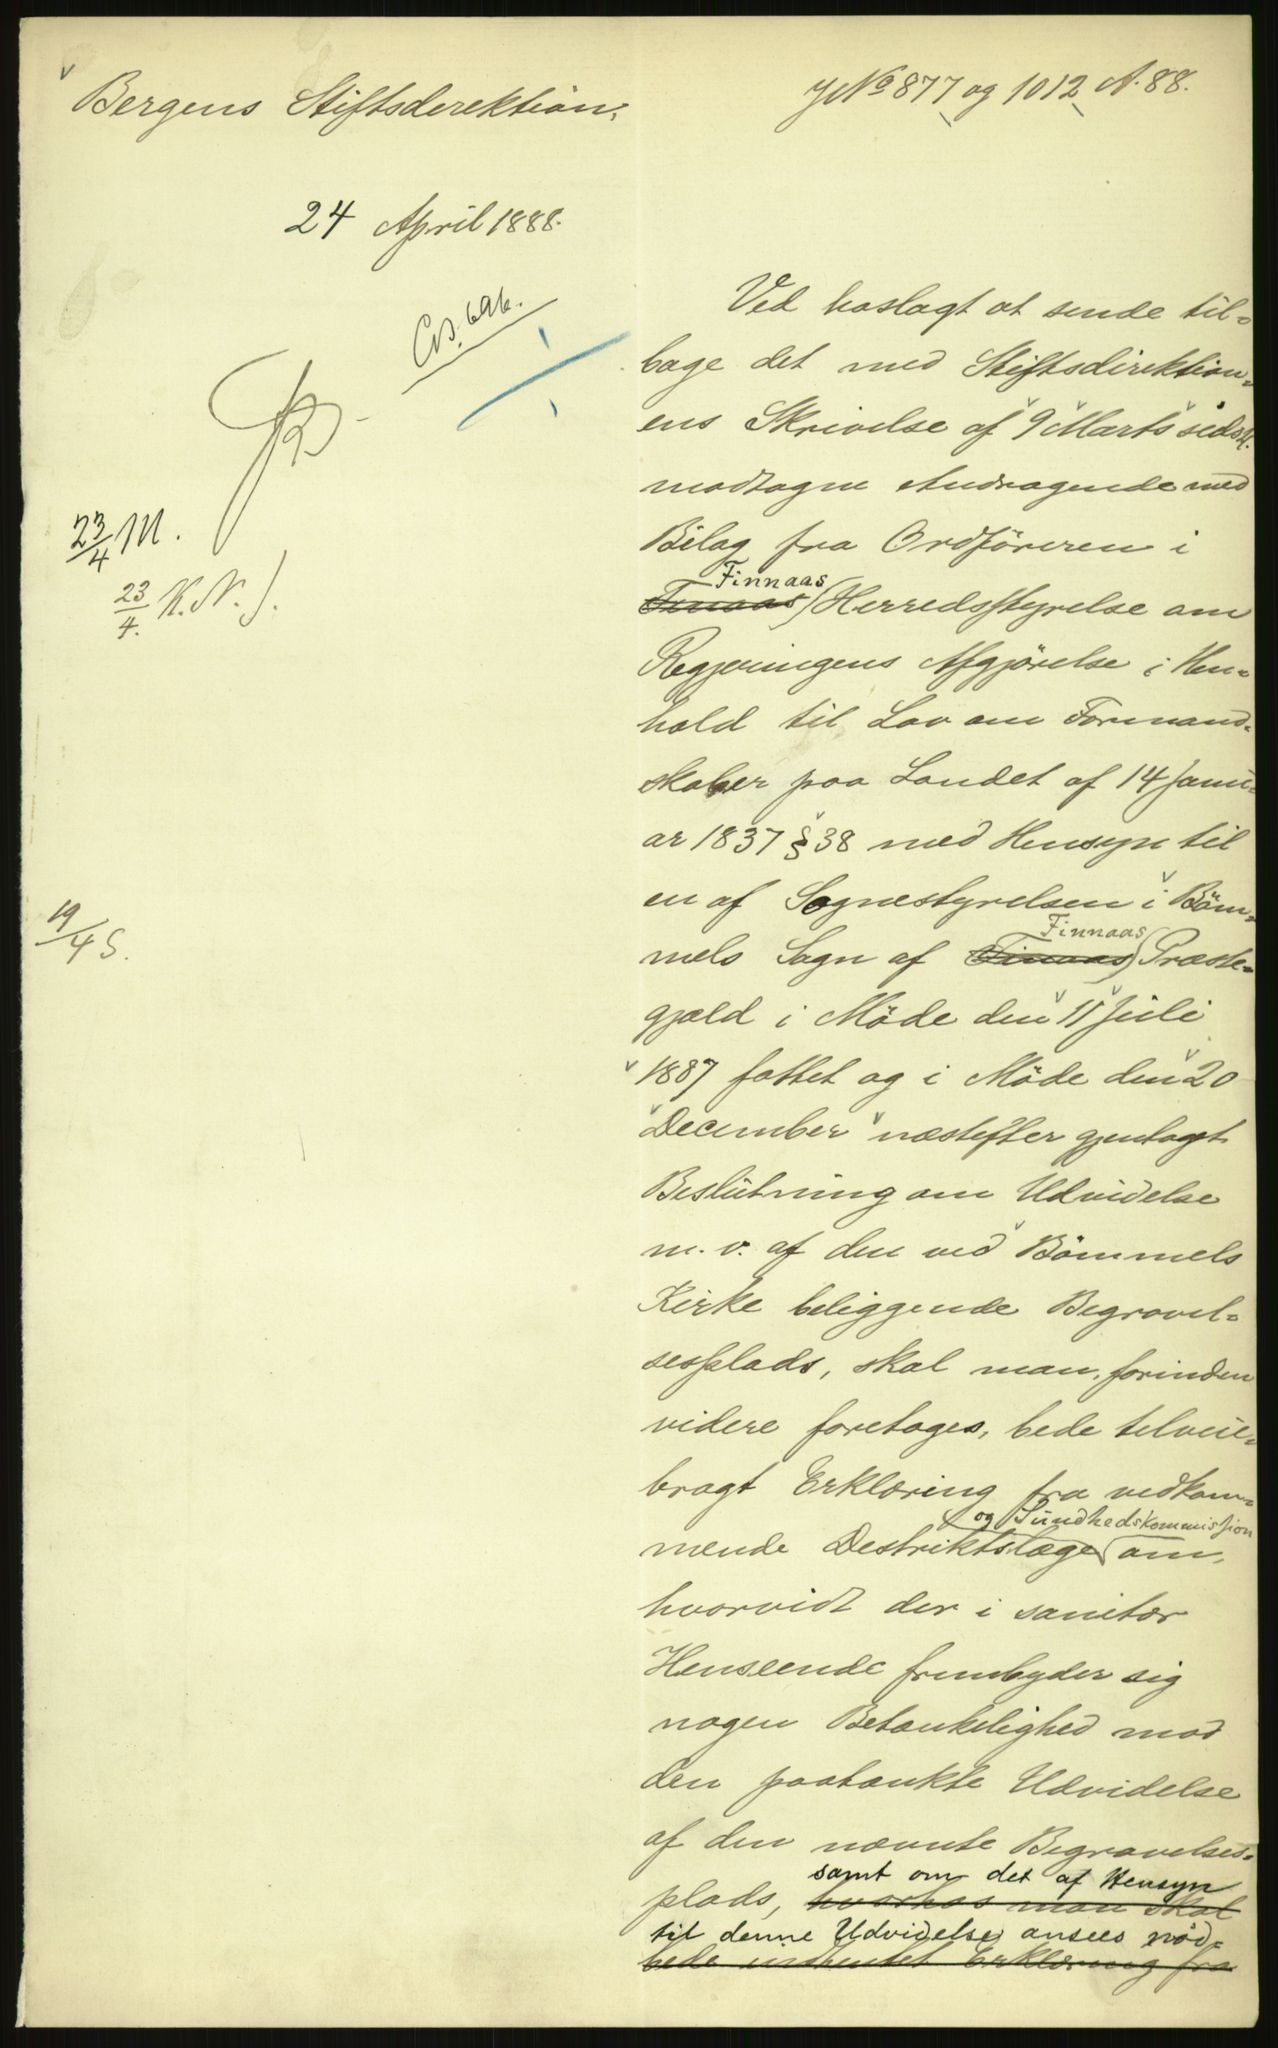 Bergens Stiftsdirektion.
JNo 877 og 1012 A. 88.
24 April 1888.
23/4 M.
23/4. K. N. J.
19/4 S.
Ved hoslagt at sende til-
bage det med Stiftsdirektion-
ens Skrivelse af 9 Marts sidstl.
modtagne Andragende med
Bilag fra Ordföreren i
Finnaas
Finaas Herredsstyrelse om
Regjeringens Afgjörelse i Hen-
hold til Lov om Formand-
skaber paa Landet af 14 Janu-
ar 1837 § 38 med Hensyn til
en af Sognestyrelsen i Böm-
Finnaas
mels Sogn af Finaas Præste-
gjæld i Möde den 11 Juli
1887 fattet og i Möde den 20
December næstefter gjentaget
Beslutning om Udvidelse
m. v. af den ved Bömmels
Kirke beliggende Begravel-
sesplads, skal man, forinden
videre foretages, bede tilveie-
bragt Erklæring fra vedkom-
og Sundhedskommission
mende Destriktslæge om,
hvorvidt der i sanitær
Henseende frembyder sig
nogen Betænkelighed mod
den paatænkte Udvidelse
af den nævnte Begravelses-
samt om det af Hensyn
plads, hvorhos man skal
til denne Udvidelse ansees nöd-
bede indhentet Erklæring fra